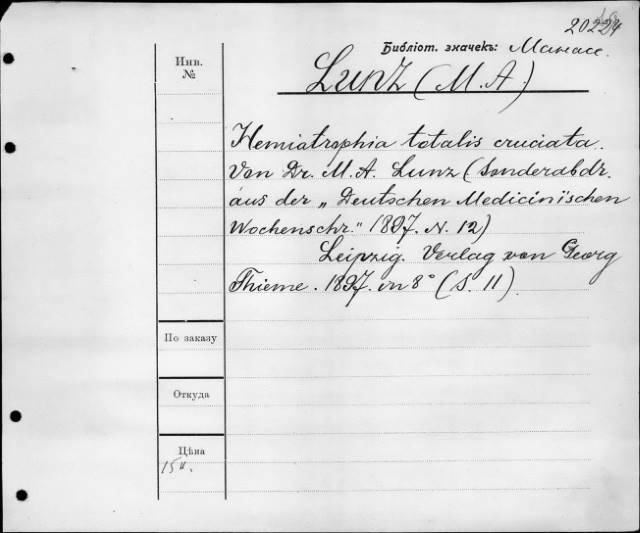 20224
Библіот. значекъ: Манасс.
Инв. №
Lunz (M. A.)
Hemiatrophia totalis cruciata.
Von Dr. M. A. Lunz (Sonderabdr.
aus der „Deutschen Medicinischen
Wochenschr." 1897. N. 12)
Leipzig. Verlag von Georg
Thieme. 1897. in 8° (S. 11)
По заказу
Откуда
Цѣна